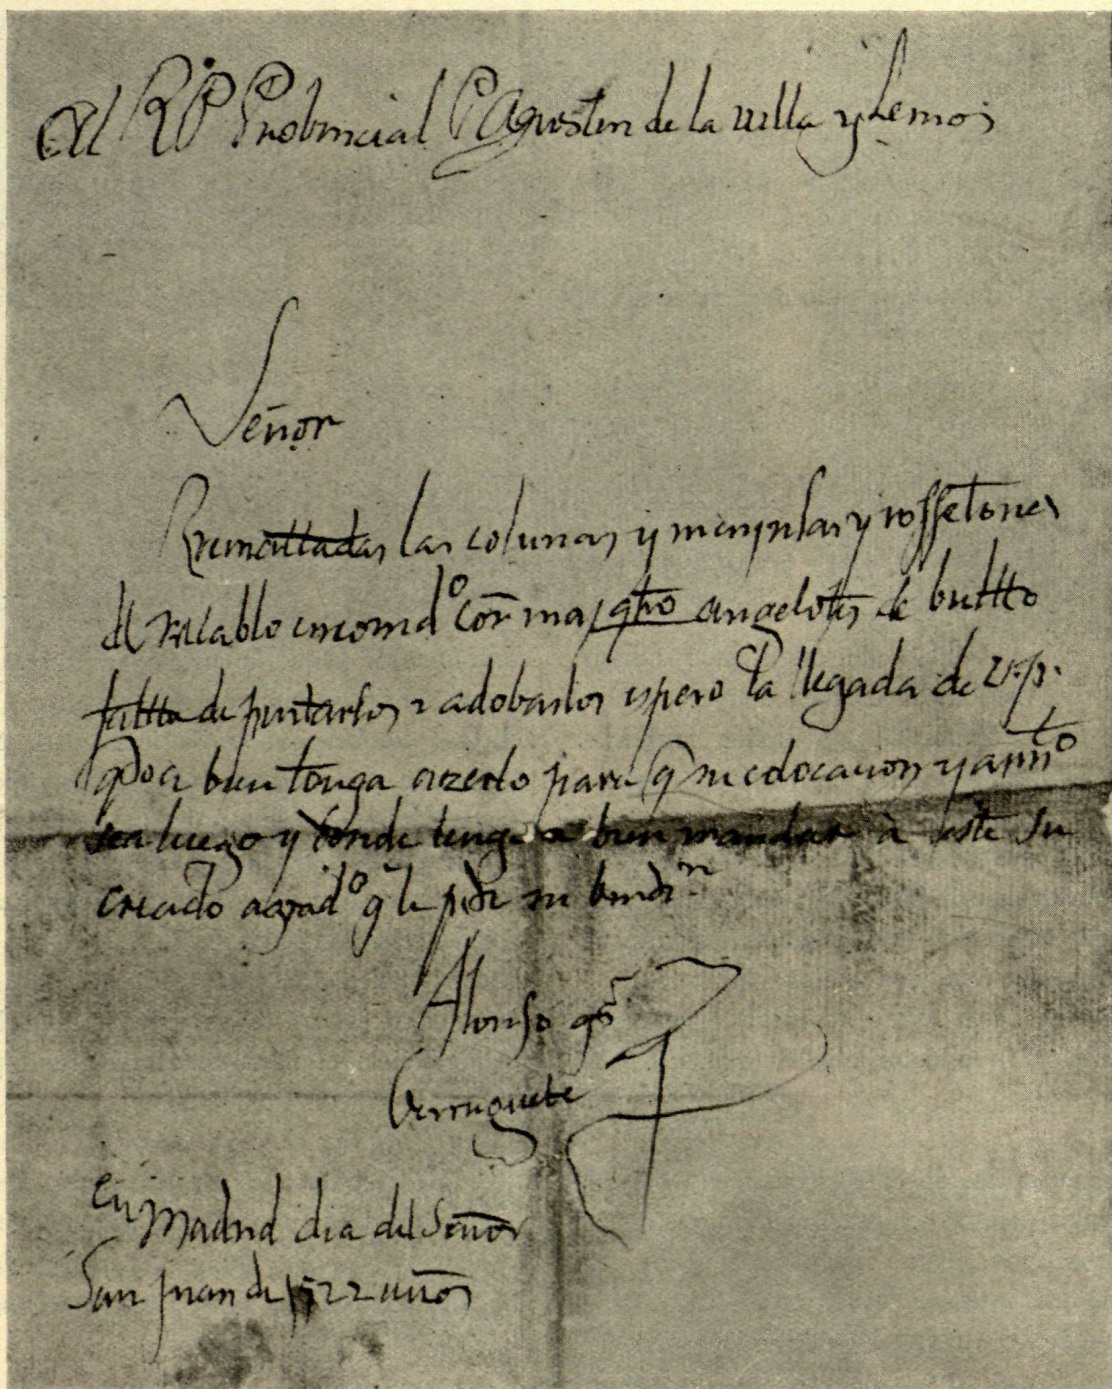 Al R P Probincial P Agusten de la uilla y Lemos
Señor
Rremattadas las colunas y mensulas y rossetones
del retablo encomdº con mas qtro angelotes de bultto
faltta de pintarlos y adobarlos espero la llegada de v. p.
qdo a bien tenga azerlo para q su colocacion
sea luego y donde tenga a bien mandar à este su
criado agradº q le pide su bendiⁿ
Alonso gs
berruguete
en Madrid dia del Señor
San Juan de 1522 años